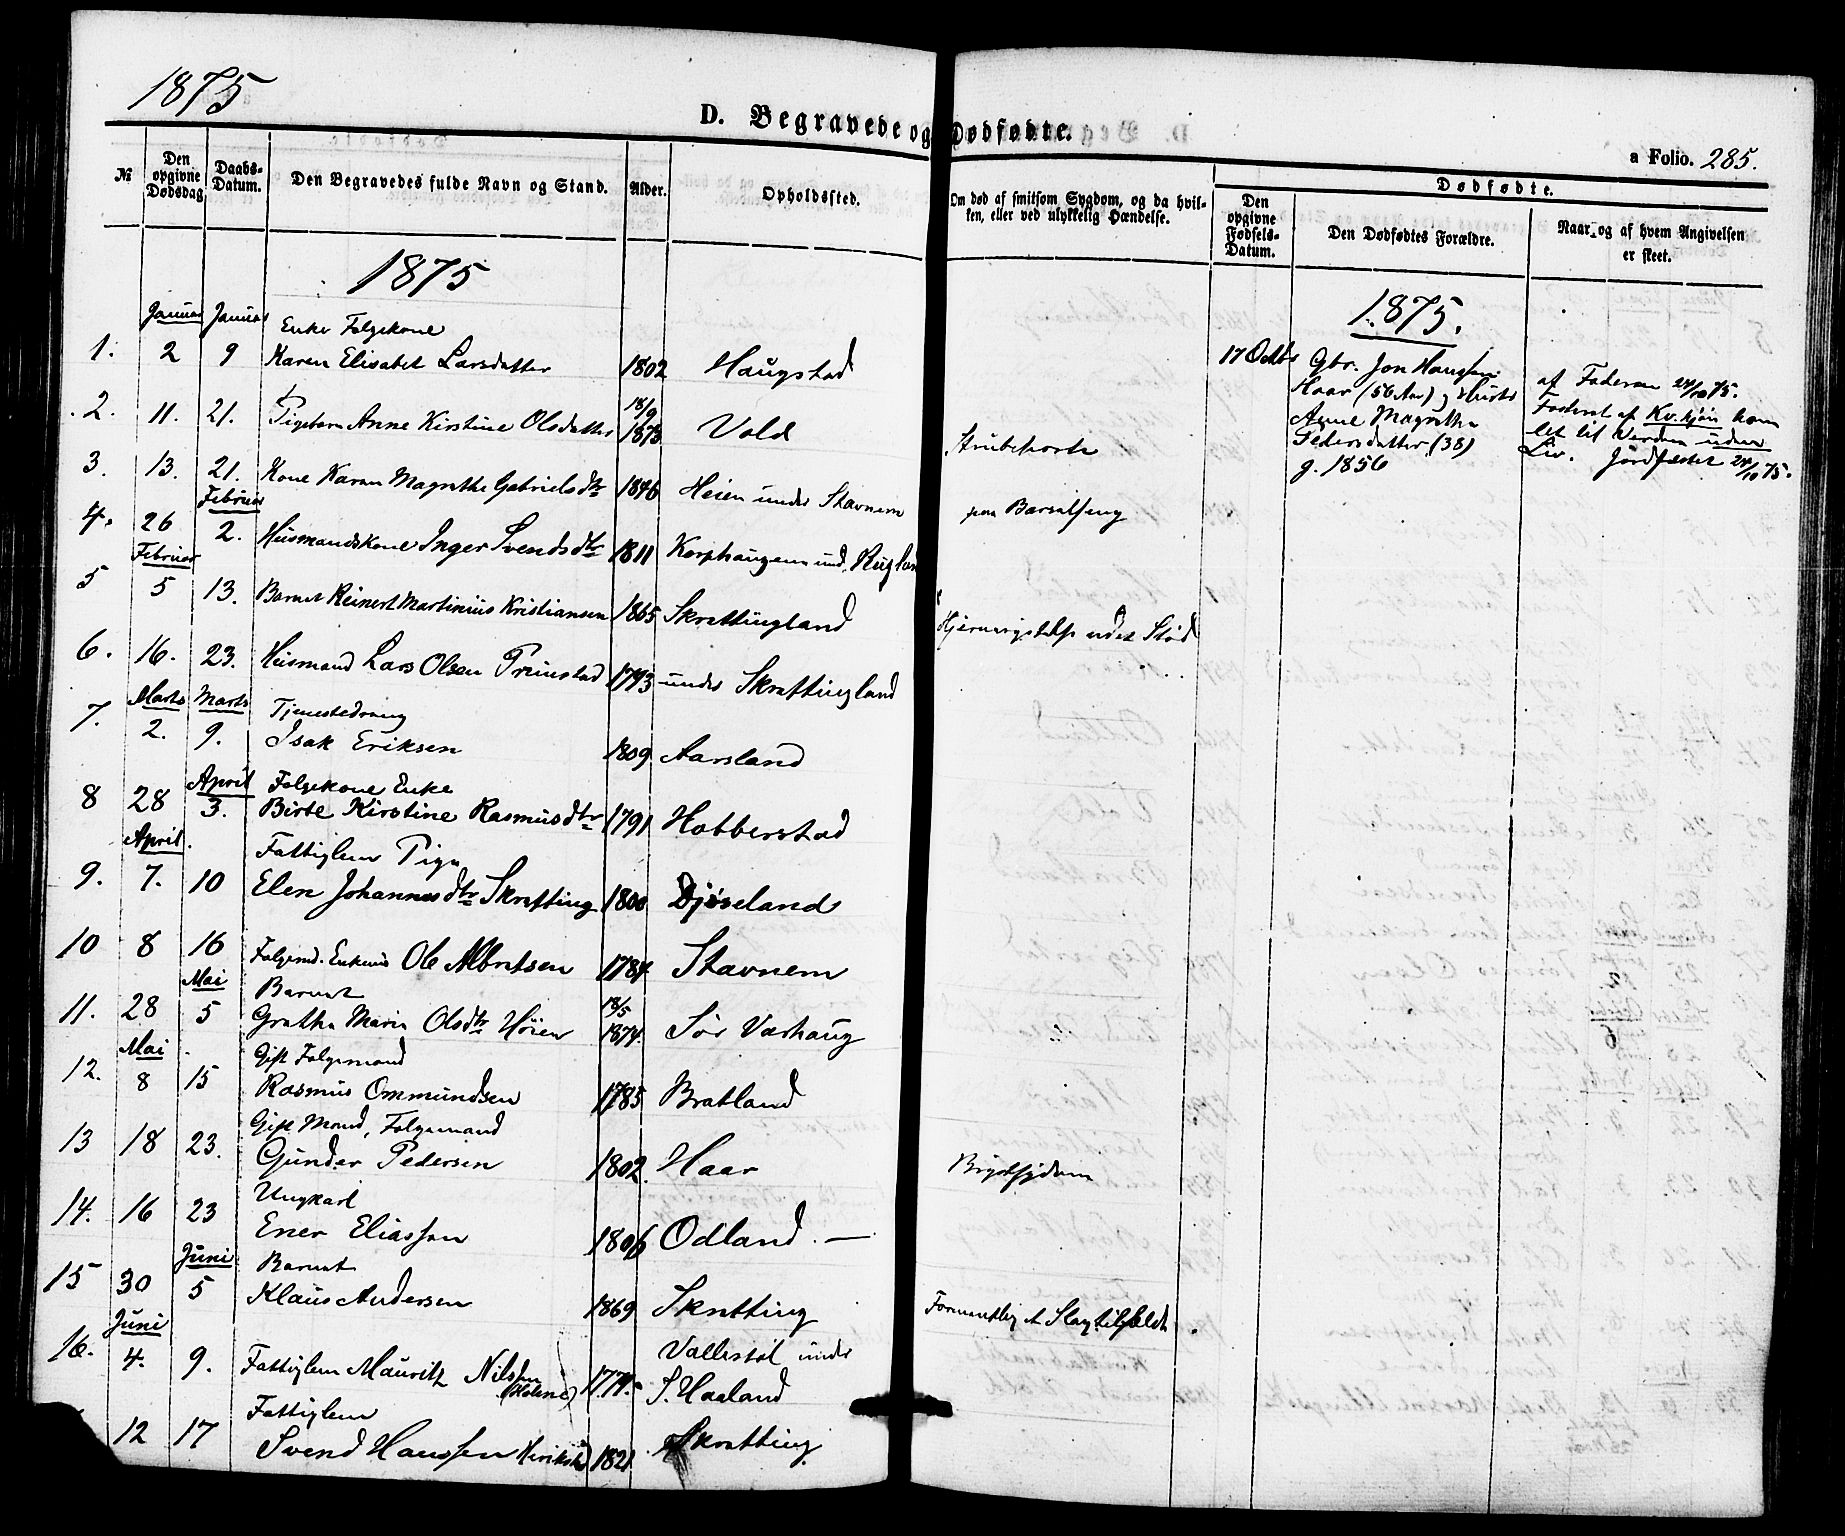 1875
D. Begravede og Dødfødte.
a Folio. 285.
№
Den opgivne Dødsdag
Daabs-Datum.
Den Begravedes fulde Navn og Stand.
Alder.
Opholdssted.
Om død af smitsom Sygdom, og da hvil-
ken, eller ved ulykkelig Hændelse.
Dødfødte.
Den opgivne Fødsels-Datum.
Den Dødfødtes Forældre.
Naar og af hvem Angivelsen
er skeet.
1875
Januar Januar Enke Folgekone
1. 2 9 Karen Elisabet Larsdatter 1802 Haugstad
2. 11. 21. Pigebarn Anne Kirstine Olsdatter 18/9 1873 Vold Strubehoste
3. 13. 21. Kone Karen Magrethe Gabrielsdtr 1846 Heien under Stavnem paa Barselseng
Februar
4. 26 2. Husmandskone Inger Svendsdtr 1811 Korphaugen und.
Februar
5 5 13. Barnet Reinert Martinius Kristiansen 1865 Skrettingland
6. 16. 23. Husmand Lars Olsen 1793 under Skrettingland
Marts Marts Tjenestedreng
7. 2. 9. Isak Eriksen 1809 Aarsland
April Folgekone Enke
8 28 3. Birte Kirstine Rasmusdtr 1791 Hobberstad
April Fattiglem Pige
9. 7. 10 Elen Johannesdtr Skretting 1800 Djøseland
10 8 16 Folgemd. Enkem Ole Albretsen 1784 Stavnem
Mai Barnet
11. 28 5 Grethe Marie Olsdtr Høien 18/5 1874. Sør Varhaug
Mai Gift Folgemand
12. 8 15 Rasmus Ommundsen 1785 Bratland
Gift Mand, Folgemand
13 18 23. Gunder Pedersen 1802. Haar Brystsygdom
Ungkarl
14. 16 23 Ener Eliassen 1806 Odland. —
Juni Barnet
15 30 5 Klaus Andersen 1869 Skretting Formentlig et Slagtilfælde
Juni
16. 4. 9. Fattiglem Mauritz Nilssen Vallestöl under
S. Haaland
Fattiglem
12 17 Svend Hanssen 1821 Skretting.
1875.
17 Octbr Gbr. Jon Hansen
Haar (56 Aar) og Hustr
Anne Magrethe
Pedersdatter (38)
g. 1856
af Faderen 24/10 75.
Fosteret af Kv.kjøn kom
let til Verden uden
Liv. Jordfæstet 24/10 75.